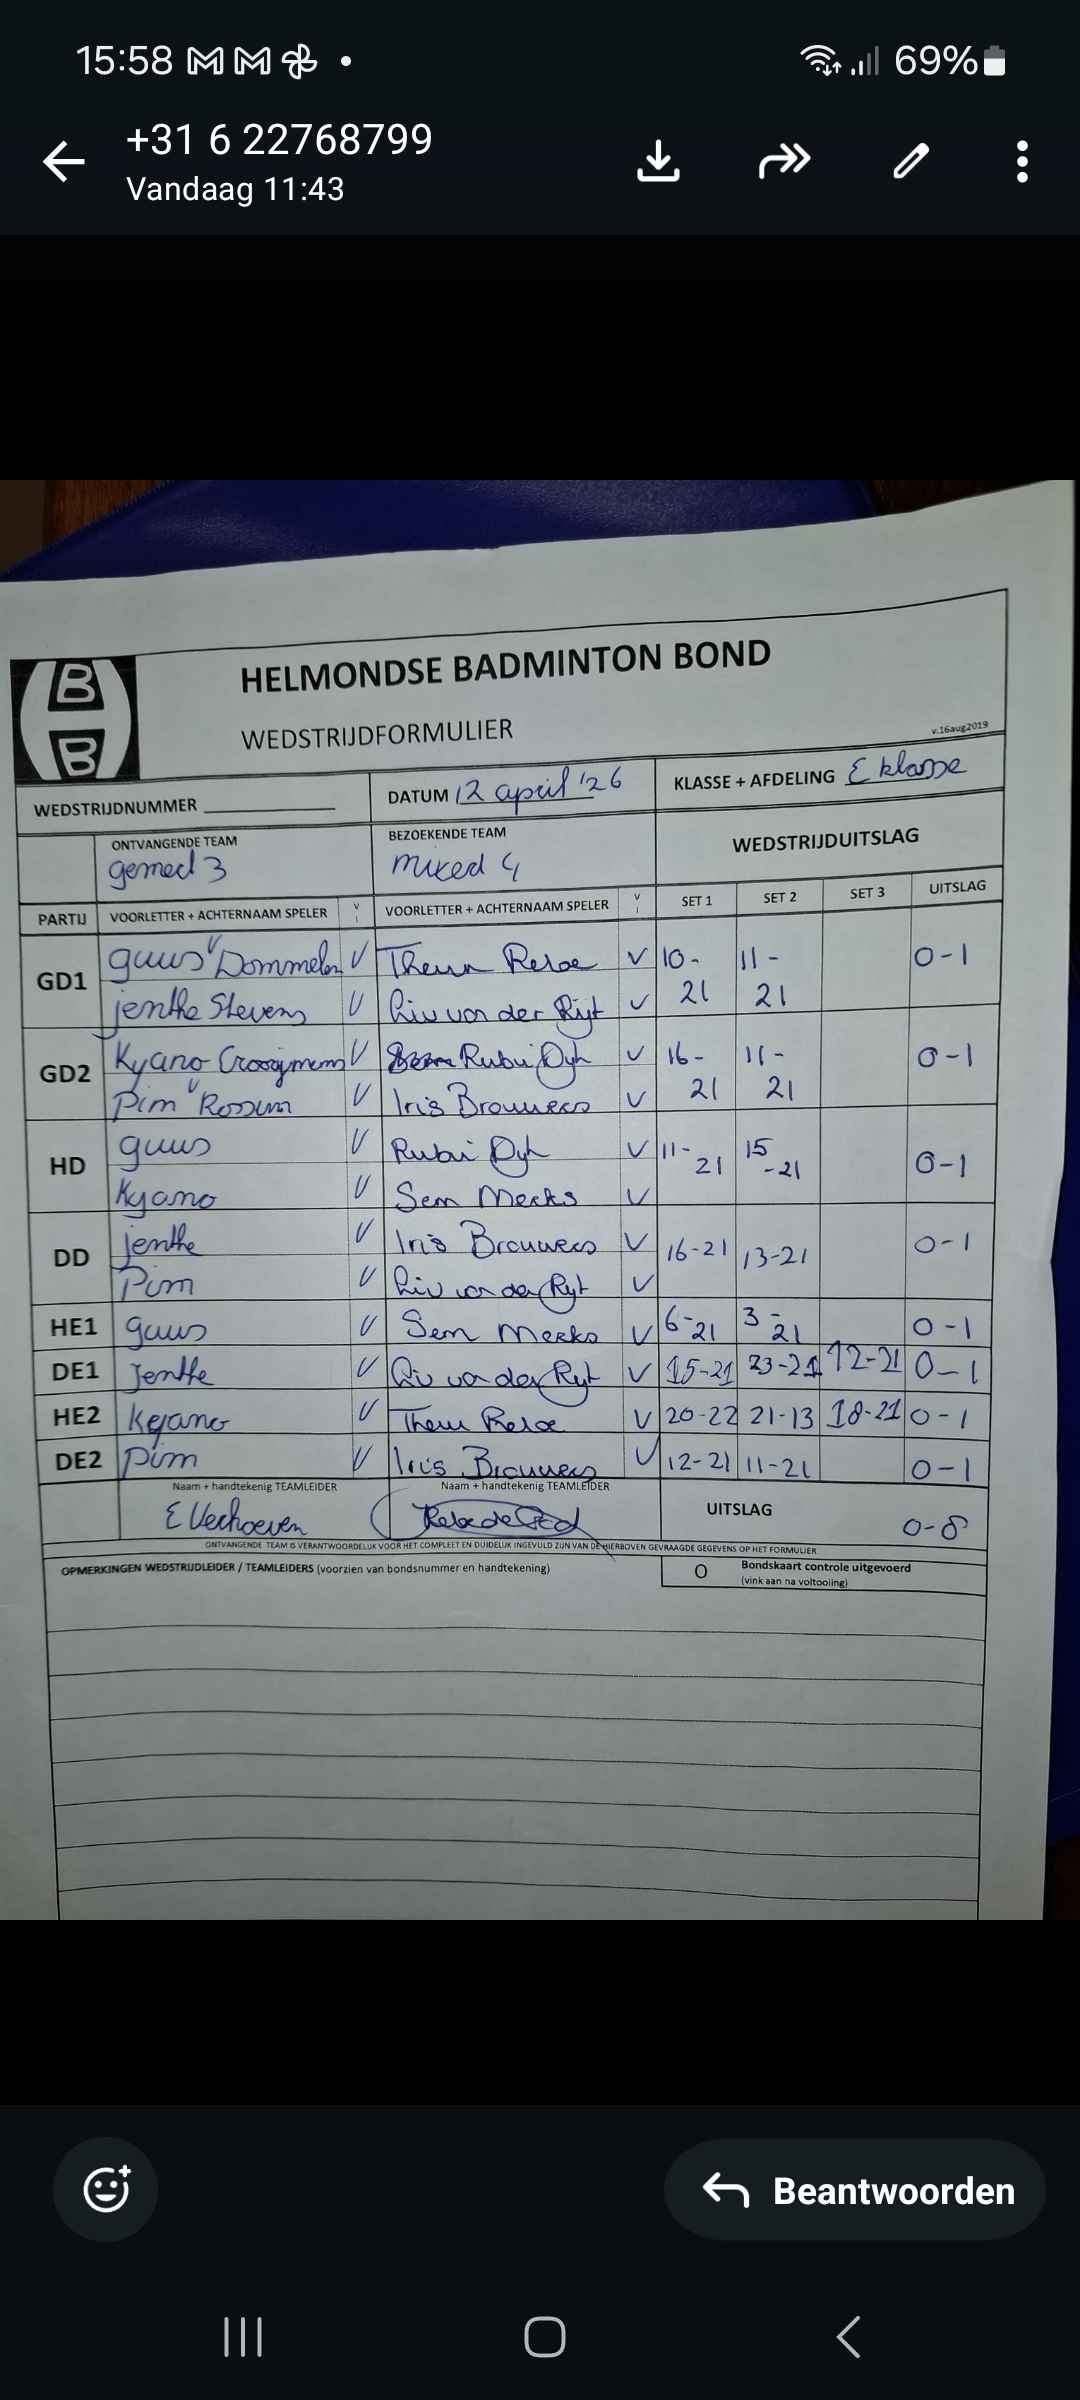 15:58
69%
+31 6 22768799
Vandaag 11:43
B
B
HELMONDSE BADMINTON BOND
WEDSTRIJDFORMULIER
v.16aug2019
WEDSTRIJDNUMMER
DATUM 12 april '26
KLASSE + AFDELING E klasse
ONTVANGENDE TEAM
gemert 3
BEZOEKENDE TEAM
mixed 4
WEDSTRIJDUITSLAG
PARTIJ VOORLETTER + ACHTERNAAM SPELER V VOORLETTER + ACHTERNAAM SPELER V SET 1 SET 2 SET 3 UITSLAG
GD1 guus v Dommelen V V 10-21 11-21 0-1
jenthe Stevens V Liv van der Rijt V
GD2 Kyano V Rubi Dyh V 16-21 11-21 0-1
Pim v Rossum V Iris Brouwers V
HD guus V Rubi Dyh V 11-21 15-21 0-1
Kyano V Sem Meeks V
DD jenthe V Iris Brouwers V 16-21 13-21 0-1
Pim V Liv van der Ryt V
HE1 guus V Sem Meeks V 6-21 3-21 0-1
DE1 Jenthe V Liv van der Ryt V 15-21 23-21 12-21 0-1
HE2 Keyano V V 20-22 21-13 18-21 0-1
DE2 Pim V Iris Brouwers V 12-21 11-21 0-1
Naam + handtekenig TEAMLEIDER
E Verhoeven
Naam + handtekenig TEAMLEIDER
UITSLAG 0-8
ONTVANGENDE TEAM IS VERANTWOORDELIJK VOOR HET COMPLEET EN DUIDELIJK INGEVULD ZIJN VAN DE HIERBOVEN GEVRAAGDE GEGEVENS OP HET FORMULIER
OPMERKINGEN WEDSTRIJDLEIDER / TEAMLEIDERS (voorzien van bondsnummer en handtekening)
O Bondskaart controle uitgevoerd
(vink aan na voltooiing)
Beantwoorden